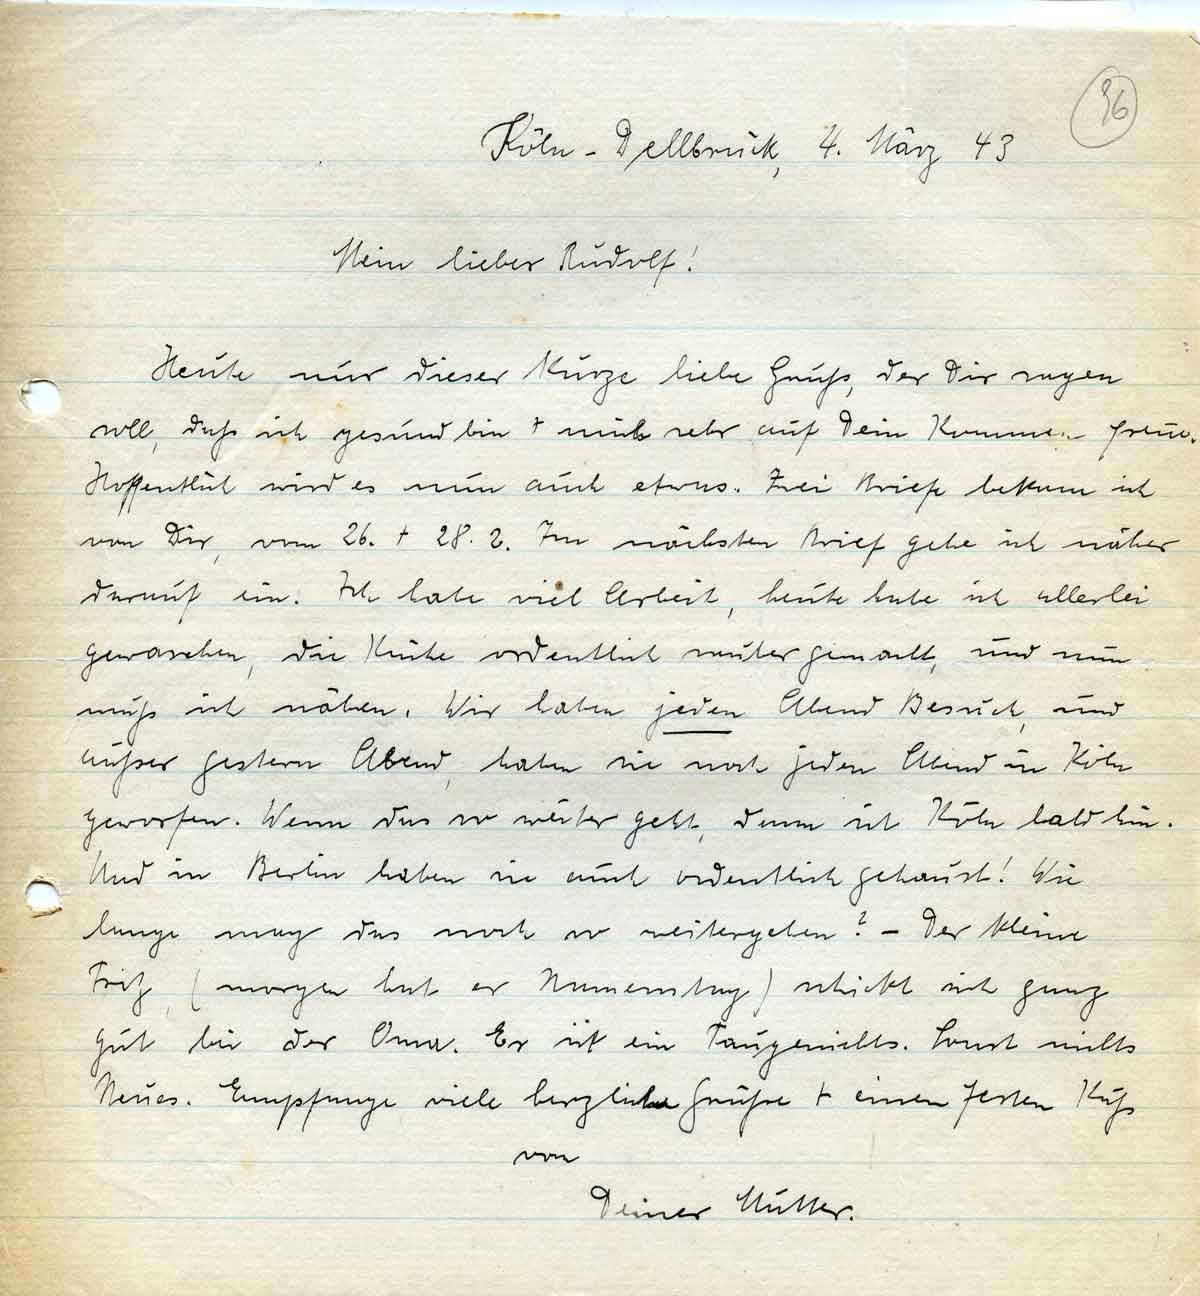 96
Köln-Dellbrück, 4. März 43
Mein lieber Rudolf!
Heute nur dieser kurze liebe Gruß, der Dir sagen
soll, daß ich gesund bin + mich sehr auf Dein Kommen freue.
Hoffentlich wird es nun auch etwas. Zwei Briefe bekam ich
von Dir, vom 26. + 28. 2. Im nächsten Brief gehe ich näher
darauf ein. Ich habe viel Arbeit, heute habe ich allerlei
gewaschen, die Küche ordentlich sauber gemacht, und nun
muß ich nähen. Wir haben jeden Abend Besuch, und
außer gestern Abend, haben sie noch jeden Abend in Köln
geworfen. Wenn das so weiter geht, dann ist Köln bald hin.
Und in Berlin haben sie auch ordentlich gehaust! Wie
lange mag das noch so weitergehen? – Der kleine
Fritz, (morgen hat er Namenstag) schickt sich ganz
gut bei der Oma. Er ist ein Taugenichts. Sonst nichts
Neues. Empfange viele herzliche Grüße + einen festen Kuß
von
Deiner Mutter.